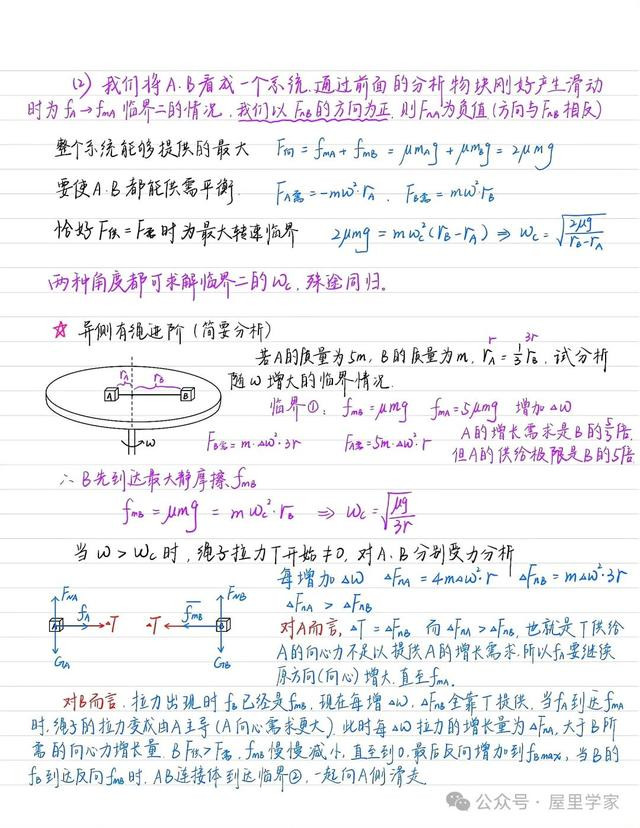 (2) 我们将A.B看成一个系统.通过前面的分析物块刚好产生滑动
时为fA→fmA临界二的情况.我们以FnB的方向为正.则FnA为负值(方向与FnB相反)
整个系统能够提供的最大 F向=fmA+fmB=μmAg+μmBg=2μmg
要使A.B都能供需平衡. FA需=-mω²·rA . FB需=mω²·rB
恰好F供=F需时为最大转速临界 2μmg=mωc²(rB-rA) ⇒ ωc=√(2μg/(rB-rA))
两种角度都可求解临界二的ωc.殊途同归。
☆ 异侧有绳进阶(简要分析)
rA rB
A B
ω
r 3r
若A的质量为5m,B的质量为m,rA=1/3rB,试分析
随ω增大的临界情况.
临界①: fmB=μmg fmA=5μmg 增加Δω
FB需=m·Δω²·3r FA需=5m·Δω²·r
A的增长需求是B的5/3倍
但A的供给极限是B的5倍
∴B先到达最大静摩擦fmB
fmB=μmg=mωc²·rB ⇒ ωc=√(μg/3r)
当ω>ωc时,绳子拉力T开始≠0,对A.B分别受力分析
每增加Δω ΔFnA=4mΔω²·r ΔFnB=mΔω²·3r
ΔFnA>ΔFnB
FNA fA ΔT A GA
FNB fmB ΔT B GB
对A而言,ΔT=ΔFnB 而ΔFnA>ΔFnB,也就是T供给
A的向心力不足以提供A的增长需求.所以fA要继续
原方向(向心)增大.直至fmA.
对B而言.拉力出现时fB已经是fmB,现在每增Δω,ΔFnB全靠T提供.当fA到达fmA
时.绳子的拉力变成由A主导(A向心需求更大).此时每Δω拉力的增长量为ΔFnA,大于B所
需的向心力增长量.B F供>F需,fmB慢慢减小,直至到0.最后反向增加到fBmax,当B的
fB到达反向fmB时.AB连接体到达临界②,一起向A侧滑走.
公众号·屋里学家